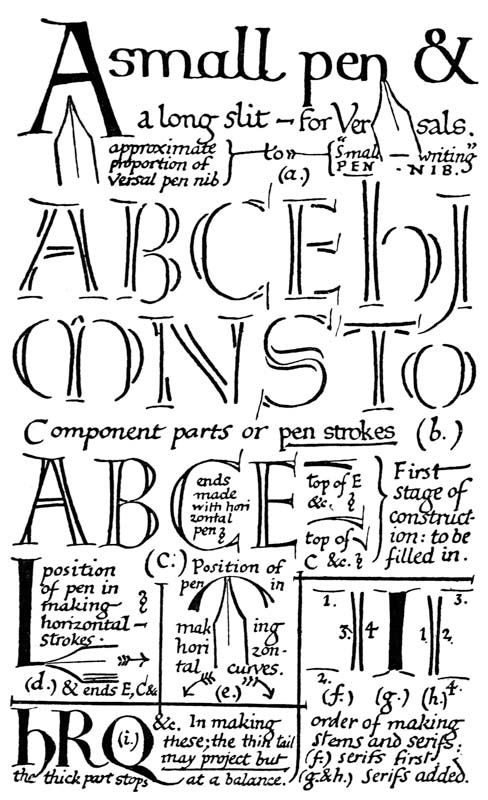 A small pen &
a long slit — for Ver sals.
approximate proportion of Versal pen nib
to
"Small — writing" PEN - NIB.
(a.)
A B C E h J
M N S T O
Component parts or pen strokes (b.)
A B C E
ends
made
with hori
zontal
pen
top of E
&c.
top of
C &c.
First
stage of
construct-
ion: to be
filled in.
(c.)
L
position
of pen in
making
horizontal —
strokes.
(d.) & ends E, C &c
Position of
pen in
mak ing
hori zon-
tal curves.
(e.)
1. 3.
3. 4 I 1 2.
2. 4.
(f.) (g.) (h.)
order of making
stems and serifs:
(f.) serifs first,
(g.&h.) serifs added.
h R Q
(i.)
&c. In making
these; the thin tail
may project but
the thick part stops at a balance.